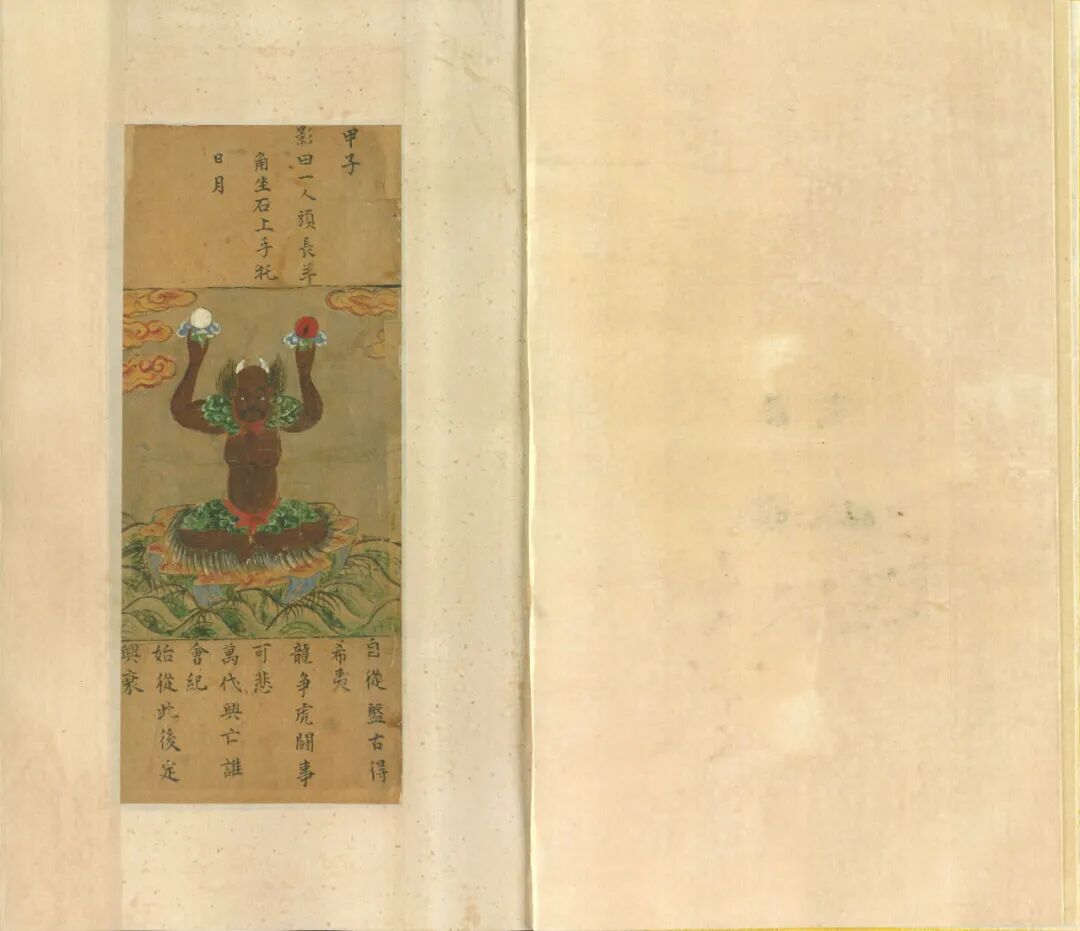 甲子
影曰一人頭長羊
角坐石上手托
日月
自從盤古得
希夷
龍争虎鬪事
可悲
萬代興亡誰
會紀
始從此後定
興衰